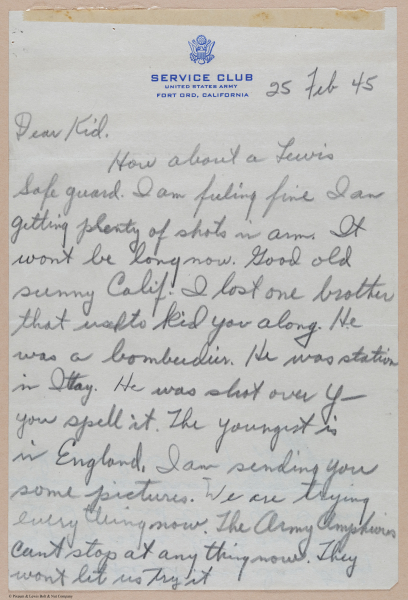 SERVICE CLUB
UNITED STATES ARMY
FORT ORD, CALIFORNIA
25 Feb 45
Dear Kid.
How about a Lewis
Safe guard. I am feeling fine I am
getting plenty of shots in arm. It
wont be long now. Good old
sunny Calif. I lost one brother
that used to kid you along. He
was a bomberdier. He was station
in Itay. He was shot over Y—
you spell it. The youngest is
in England, I am sending you
some pictures. We are trying
everything now. The Army
cant stop at any thing now. They
wont let us try it
© Forum & Lewis Bolt & Nut Company